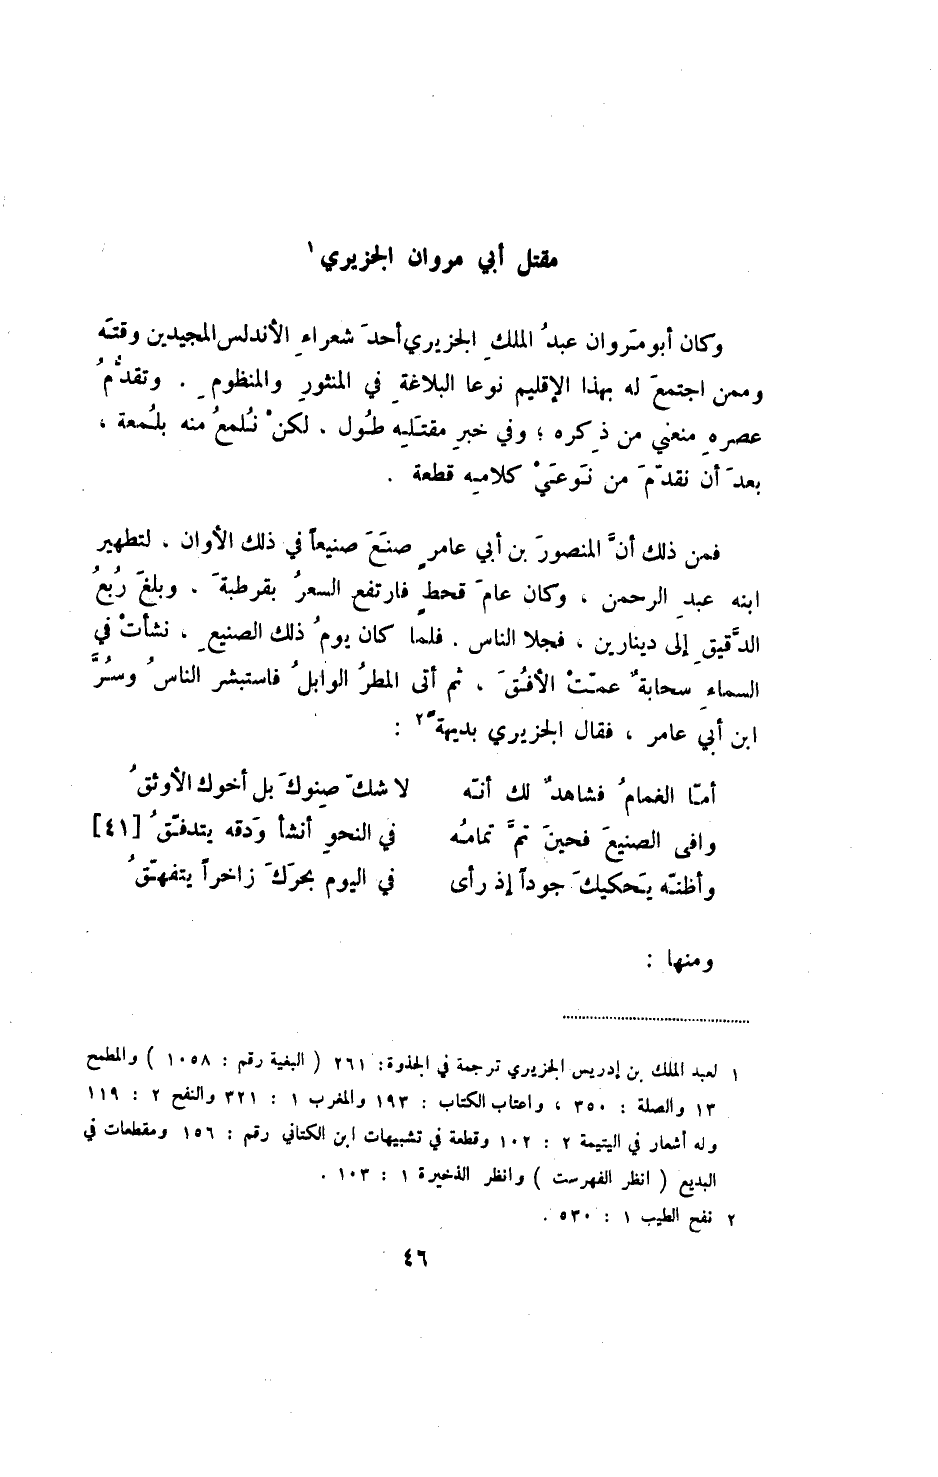 مقتل أبي مروان الجزيري١
وكان أبو مَروان عبدُ الملكِ الجزيري أحدَ شعراءِ الأندلس المجيدين وقتَه
وممن اجتمعَ له بهذا الإقليم نوعا البلاغةِ في المنثورِ والمنظومِ . وتقدُّمُ
عصرهِ منعني من ذكره ؛ وفي خبرِ مقتَلِه طُول . لكنْ نُلمعُ منه بلُمعة ،
بعدَ أن نقدّمَ من نَوعَيْ كلامِه قطعة .
فمن ذلك أنَّ المنصورَ بن أبي عامرٍ صنَعَ صنيعاً في ذلك الأوان ، لتطهير
ابنه عبدِ الرحمن ، وكان عامَ قحطٍ فارتفع السعرُ بقرطبةَ ، وبلغَ رُبعُ
الدَّقيقِ إلى دينارين ، فجلا الناس . فلما كان يومُ ذلك الصنيعِ ، نشأتْ في
السماءِ سحابةٌ عمتْ الأفُقَ ، ثم أتى المطرُ الوابلُ فاستبشر الناسُ وسُرَّ
ابن أبي عامر ، فقال الجزيري بديهةً٢ :
أمّا الغمامُ فشاهدٌ لك أنّه لا شكّ صِنوكَ بل أخوك الأوثقُ
وافى الصنيعَ فحينَ تمَّ تمامُه في النحوِ أنشأ وَدقه يتدفّقُ [٤١]
وأظنّه يَحكيكَ جوداً إذ رأى في اليوم بحرَكَ زاخراً يتفهّقُ
ومنها :
١ لعبد الملك بن إدريس الجزيري ترجمة في الجذوة: ٢٦١ ( البغية رقم : ١٠٥٨ ) والمطمح
١٣ والصلة : ٣٥٠ ، واعتاب الكتاب : ١٩٣ والمغرب ١ : ٣٢١ والنفح ٢ : ١١٩
وله أشعار في اليتيمة ٢ : ١٠٢ وقطعة في تشبيهات ابن الكتاني رقم : ١٥٦ ومقطعات في
البديع ( انظر الفهرست ) وانظر الذخيرة ١ : ١٠٣ .
٢ نفح الطيب ١ : ٥٣٠ .
٤٦